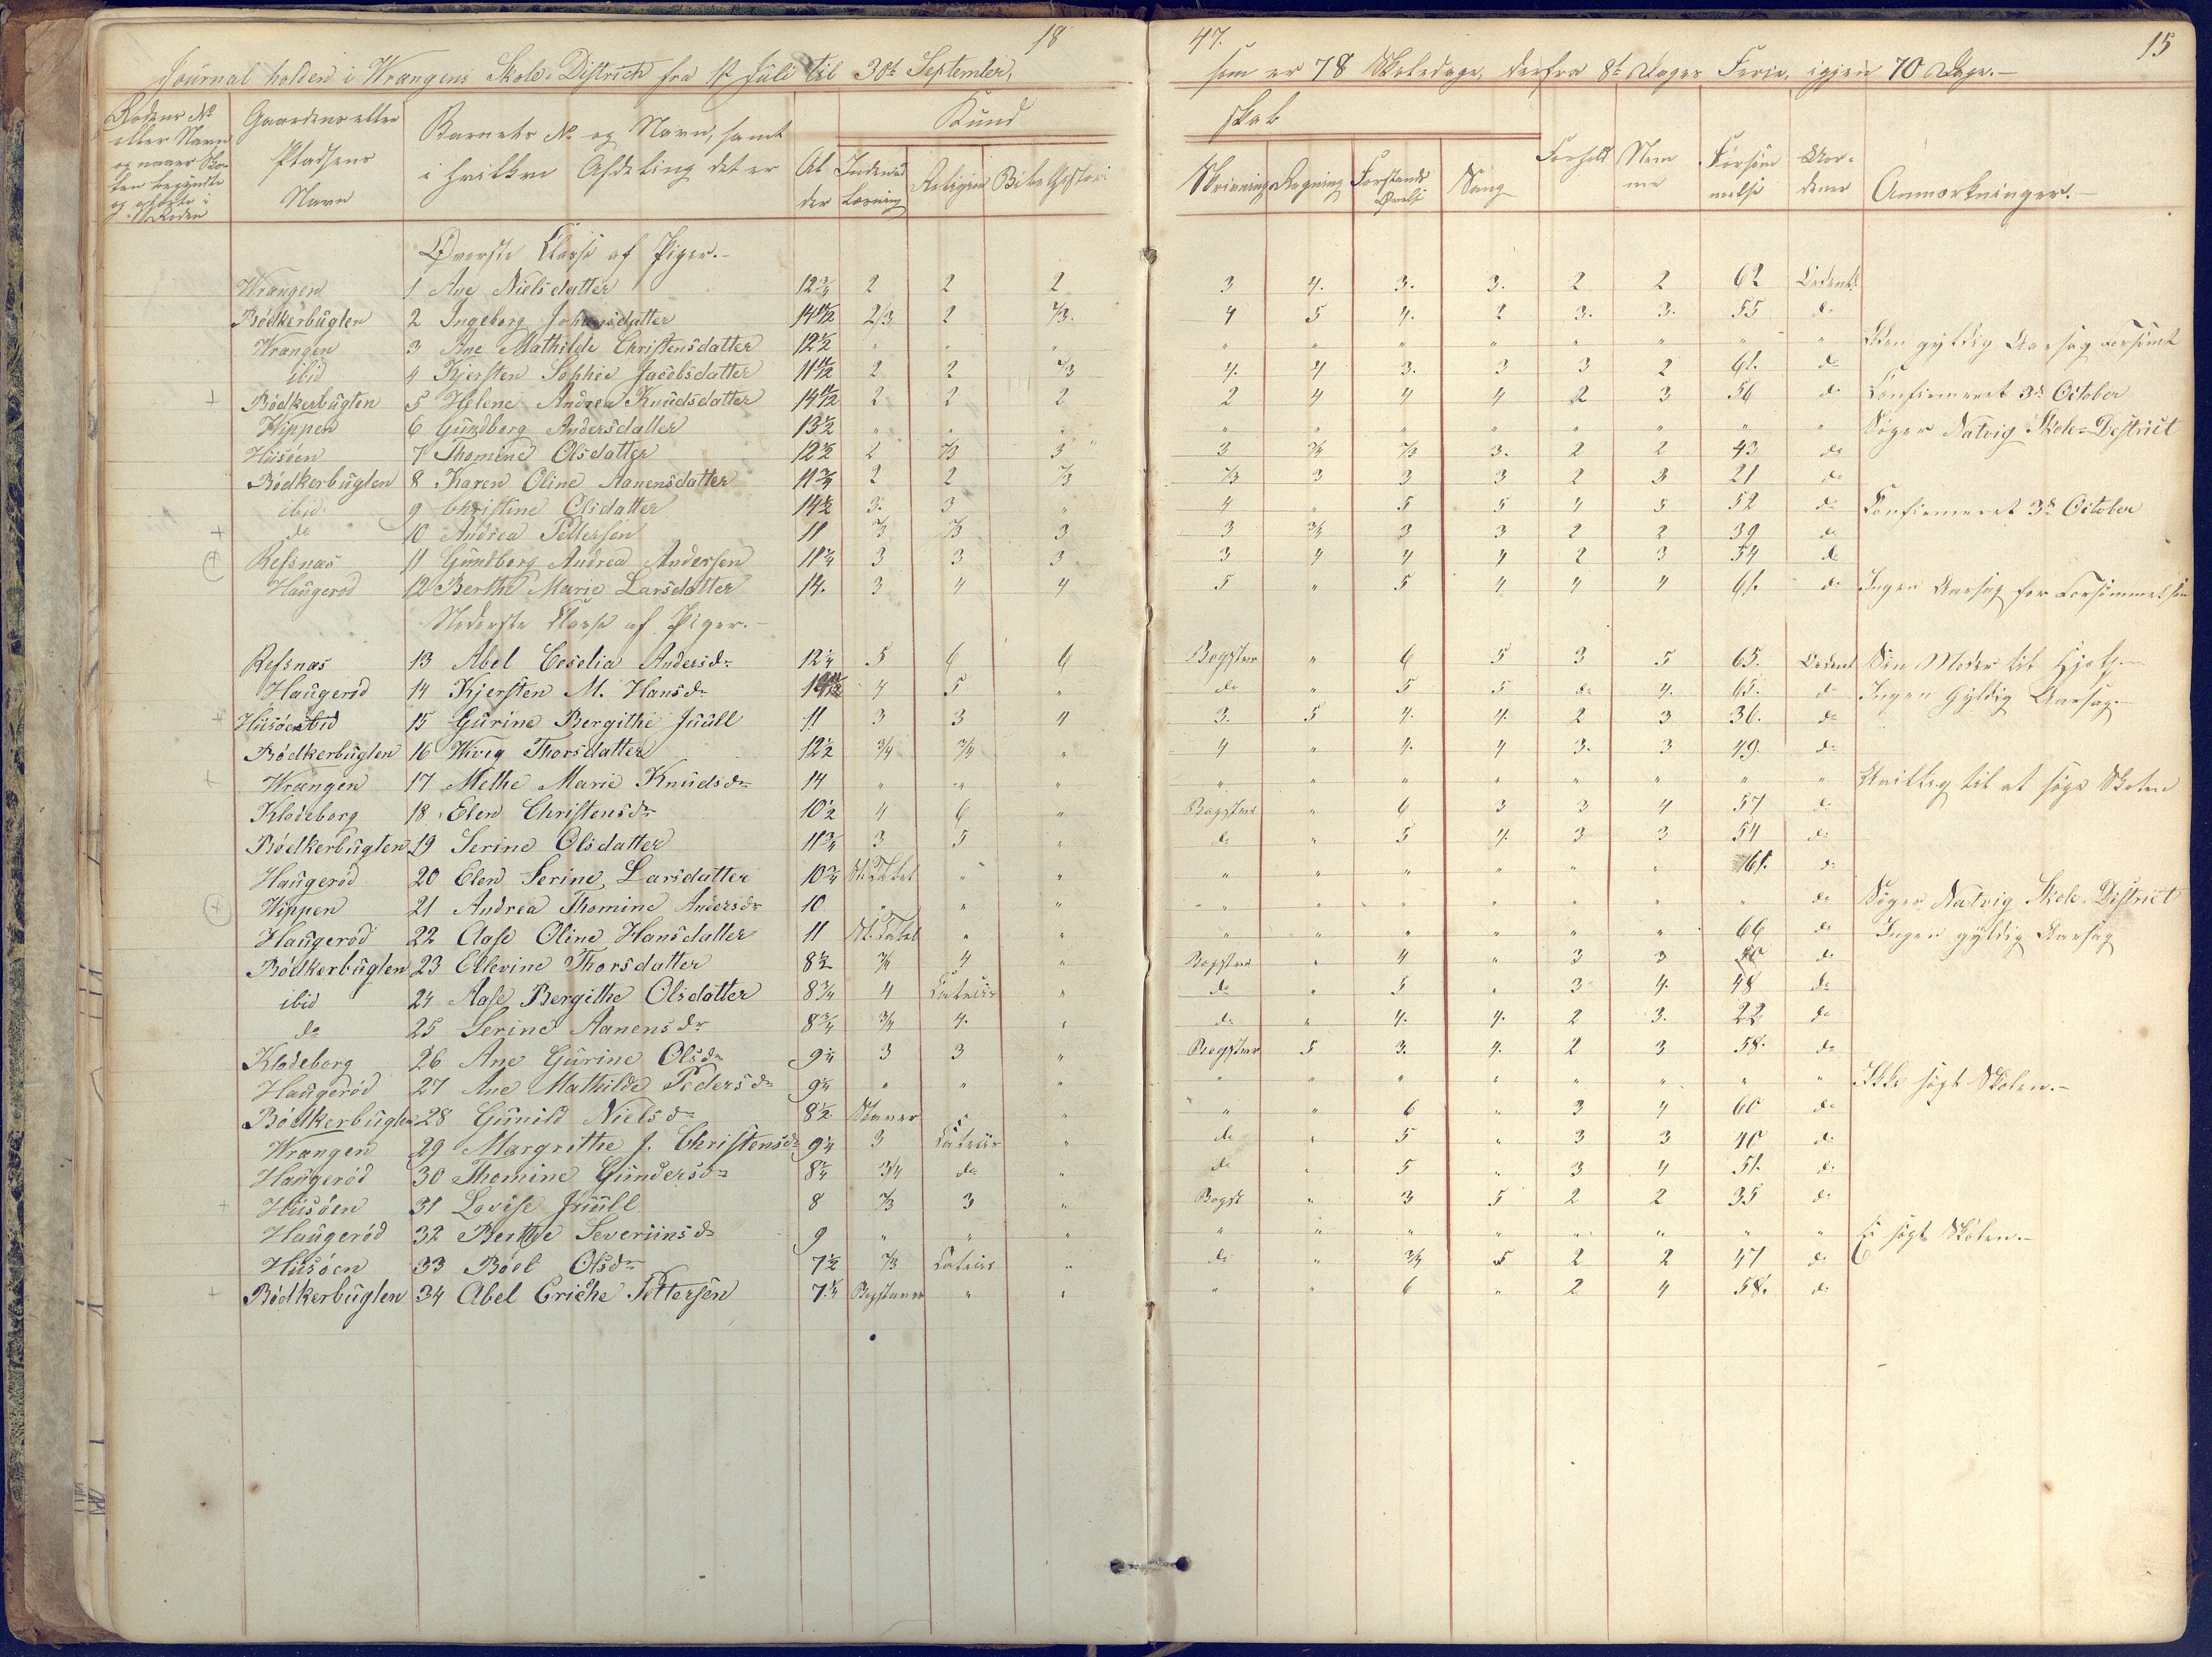 18 47. 15
Journal holden i Wrangens Skole-District fra 1ste Juli til 30te September, som er 78 Skoledage, derfra 8te Dages Ferie, igjen 70 Dage.-
Rodens No eller Navn og naar Skolen begyndte og ophørte i Roden
Gaardens eller Pladsens Navn
Barnets No og Navn, samt i hvilken Afdeling det er
Alder
Indenad Læsning
Kundskab
Religion
Bibelhistorie
Skrivning
Regning
Forstands Øvelse
Sang
Forhold
Nemme
Forsømmelse
Anmærkninger.-
Øverste Classe af Piger.-
Wrangen 1 Ane Nielsdatter 12 3/4 2 2 2 3 4. 3. 3. 2 2 62
Bödkerbuglen 2 Ingeborg Johnsdatter 14 11/12 2/3 2 2/3. 4 5 4. 2 3. 3. 55 do
Wrangen 3 Ane Mathilde Christensdatter 12 1/2 " " " " " " " " " " " Uden gyldig Aarsag forsømt
ibid 4 Kjersten Sophie Jacobsdatter 11 11/12 2 2 2/3 4. 4 3. 3 3 2 61. do
Bödkerbuglen 5 Helene Andrea Knudsdatter 14 11/12 2 2 2 2 4 4 4 2 3 56 do Confirmeret 3de October
Hippen 6 Gundborg Andersdatter 13 1/2 " " " " " " " " " " " Søger Natvig Skole-District
Husöen 7 Thomine Olsdatter 12 1/2 2 2/3 3 3 3/4 2/3 3. 2 2 43 do
Bödkerbuglen 8 Karen Oline Aanensdatter 11 3/4 2 2 2/3 2/3 3 3 3 2 3 21 do
ibid. 9 Christine Olsdatter 14 1/2 3. 3 " 4 " 5 5 4 5 52 do Confirmeret 3de October
do 10 Andrea Pettersen 11 2/3 2/3 3 3 3/4 3 3 2 2 39 do
Refsnæs 11 Gundborg Andrea Andersen 11 1/4 3 3 3 3 4 4 4 2 3 54 do
Haugeröd 12 Berthe Marie Larsdatter 14. 3 4 4 5 " 5 4 4 4 61. do Ingen Aarsag for Forsømmelsen
Nederste Classe af Piger.-
Refsnæs 13 Abel Ceselia Andersdr 12 1/4 5 6 6 Bogstav " 6 5 3 5 65.
Haugeröd 14 Kjersten M. Hansdr 4 5 " do " 5 5 do 4. 65. do Ingen Gyldig Aarsag.-
Husöen 15 Gurine Bergithe Juull 11 3 3 4 3. 5 4. 4. 2 3 36. do
Bödkerbuglen 16 Wiveg Thorsdatter 12 1/2 3/4 3/4 " 4 " 4. 4 3. 3 49. do
Wrangen 17 Methe Marie Knudsdr 14 " " " " " " " " " " " Uvillig til at søge Skolen
Klodeborg 18 Elen Christensdr 10 1/2 4 6 " Bogstav " 6 3 3 4 57 do
Bödkerbuglen 19 Serine Olsdatter 11 3/4 3 5 " do " 5 4. 3 3 54 do
Haugeröd 20 Elen Serine Larsdatter 10 3/4 St. Tabel " " " " " " " " 61. do
Hippen 21 Andrea Thomine Andersdr 10 " " " " " " " " " " do Søger Natvig Skole-District
Haugeröd 22 Aase Oline Hansdatter 11 St. Tabel " " " " " " " " 66 do Ingen gyldig Aarsag
Bödkerbuglen 23 Ellevine Thorsdatter 8 1/2 3/4 4 " Bogstav " 4 " 3 3 do
ibid 24 Aase Bergithe Olsdatter 8 3/4 4 " do " 5 " 3 4. 48 do
do 25 Serine Aanensdr 8 3/4 3/4 4. " do " 4. 4. 2 3. 22 do
Klodeborg 26 Ane Gurine Olsdr 9 1/4 3 3 " Bogstav 5 3. 4. 2 3 58. do
Haugeröd 27 Ane Mathilde Pedersdr 9 1/4 " " " " " " " " " " " Ikke søgt Skolen.-
Bödkerbuglen 28 Gunild Nielsdr 8 1/2 Staver " " " " 6 " 3 4 60 do
Wrangen 29 Margrethe J. Christensdr 9 1/4 3 " do " 5 " 3 3 40 do
Haugeröd 30 Thomine Gundersdr 8 1/4 3/4 do " do " 5 " 3 4 51. do
Husöen 31 Lovise Juull 8 2/3 3 " Bogst " 3 5 2 2 35 do
Haugeröd 32 Berthe Severinsdr 9 " " " " " " " " " " " Ei søgt Skolen.-
Husöen 33 Boel Olsdr 7 1/2 2/3 " do " 3/4 5 2 2 47 do
Bödkerbuglen 34 Abel Eriche Pettersen 7 1/4 Bogstaver " " " " 6 " 2 4 58. do